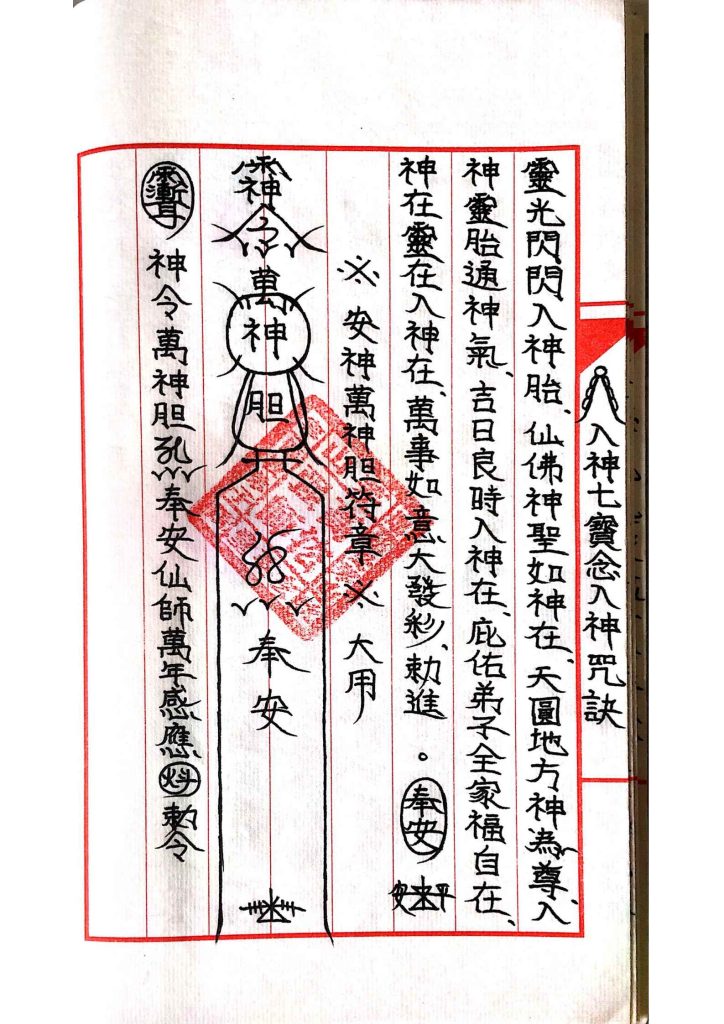 入神七寶念入神咒訣
靈光閃閃入神胎、仙佛神聖如神在、天圓地方神為尊、入
神靈胎通神氣、吉日良時入神在、庇佑弟子全家福自在、
神在靈在入神在、萬事如意大發彩、勅進。奉安
安平
※安神萬神胆符章※大用
神
令
萬
神
胆
奉
安
神令萬神胆奉安仙師萬年感應勅令